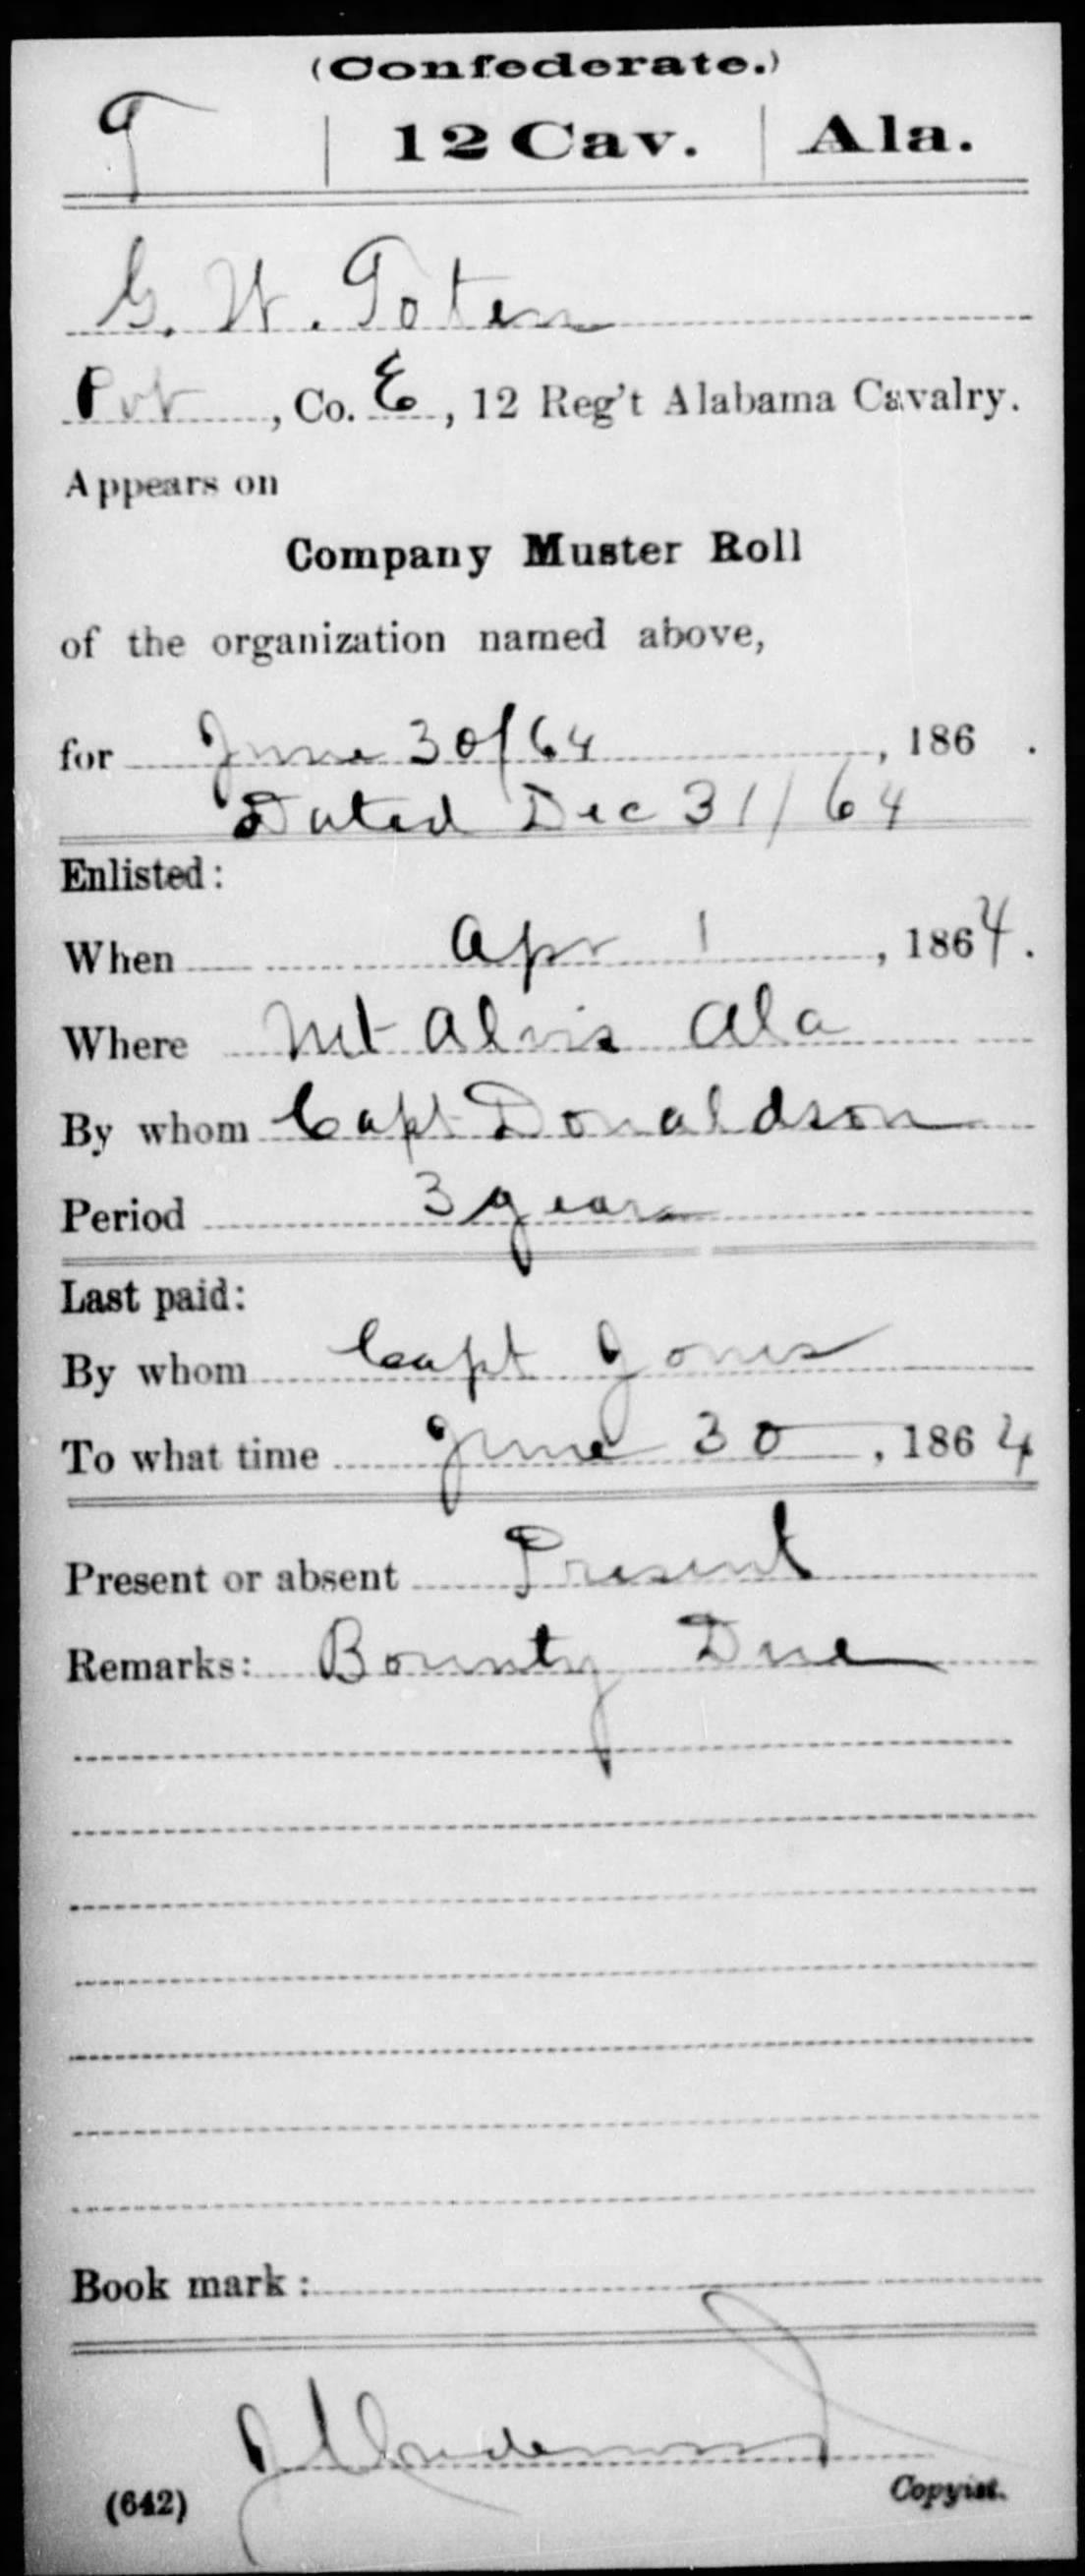 (Confederate.)
T | 12 Cav. | Ala.
G. W. Toten
Pvt, Co. E, 12 Reg't Alabama Cavalry.
Appears on
Company Muster Roll
of the organization named above,
for June 30/64, 186 .
Dated Dec 31/64
Enlisted:
When Apr 1, 1864.
Where Mt Alvis Ala
By whom Capt Donaldson
Period 3 years
Last paid:
By whom Capt Jones
To what time June 30, 1864
Present or absent Present
Remarks: Bounty Due
Book mark:
(642)
Copyist.